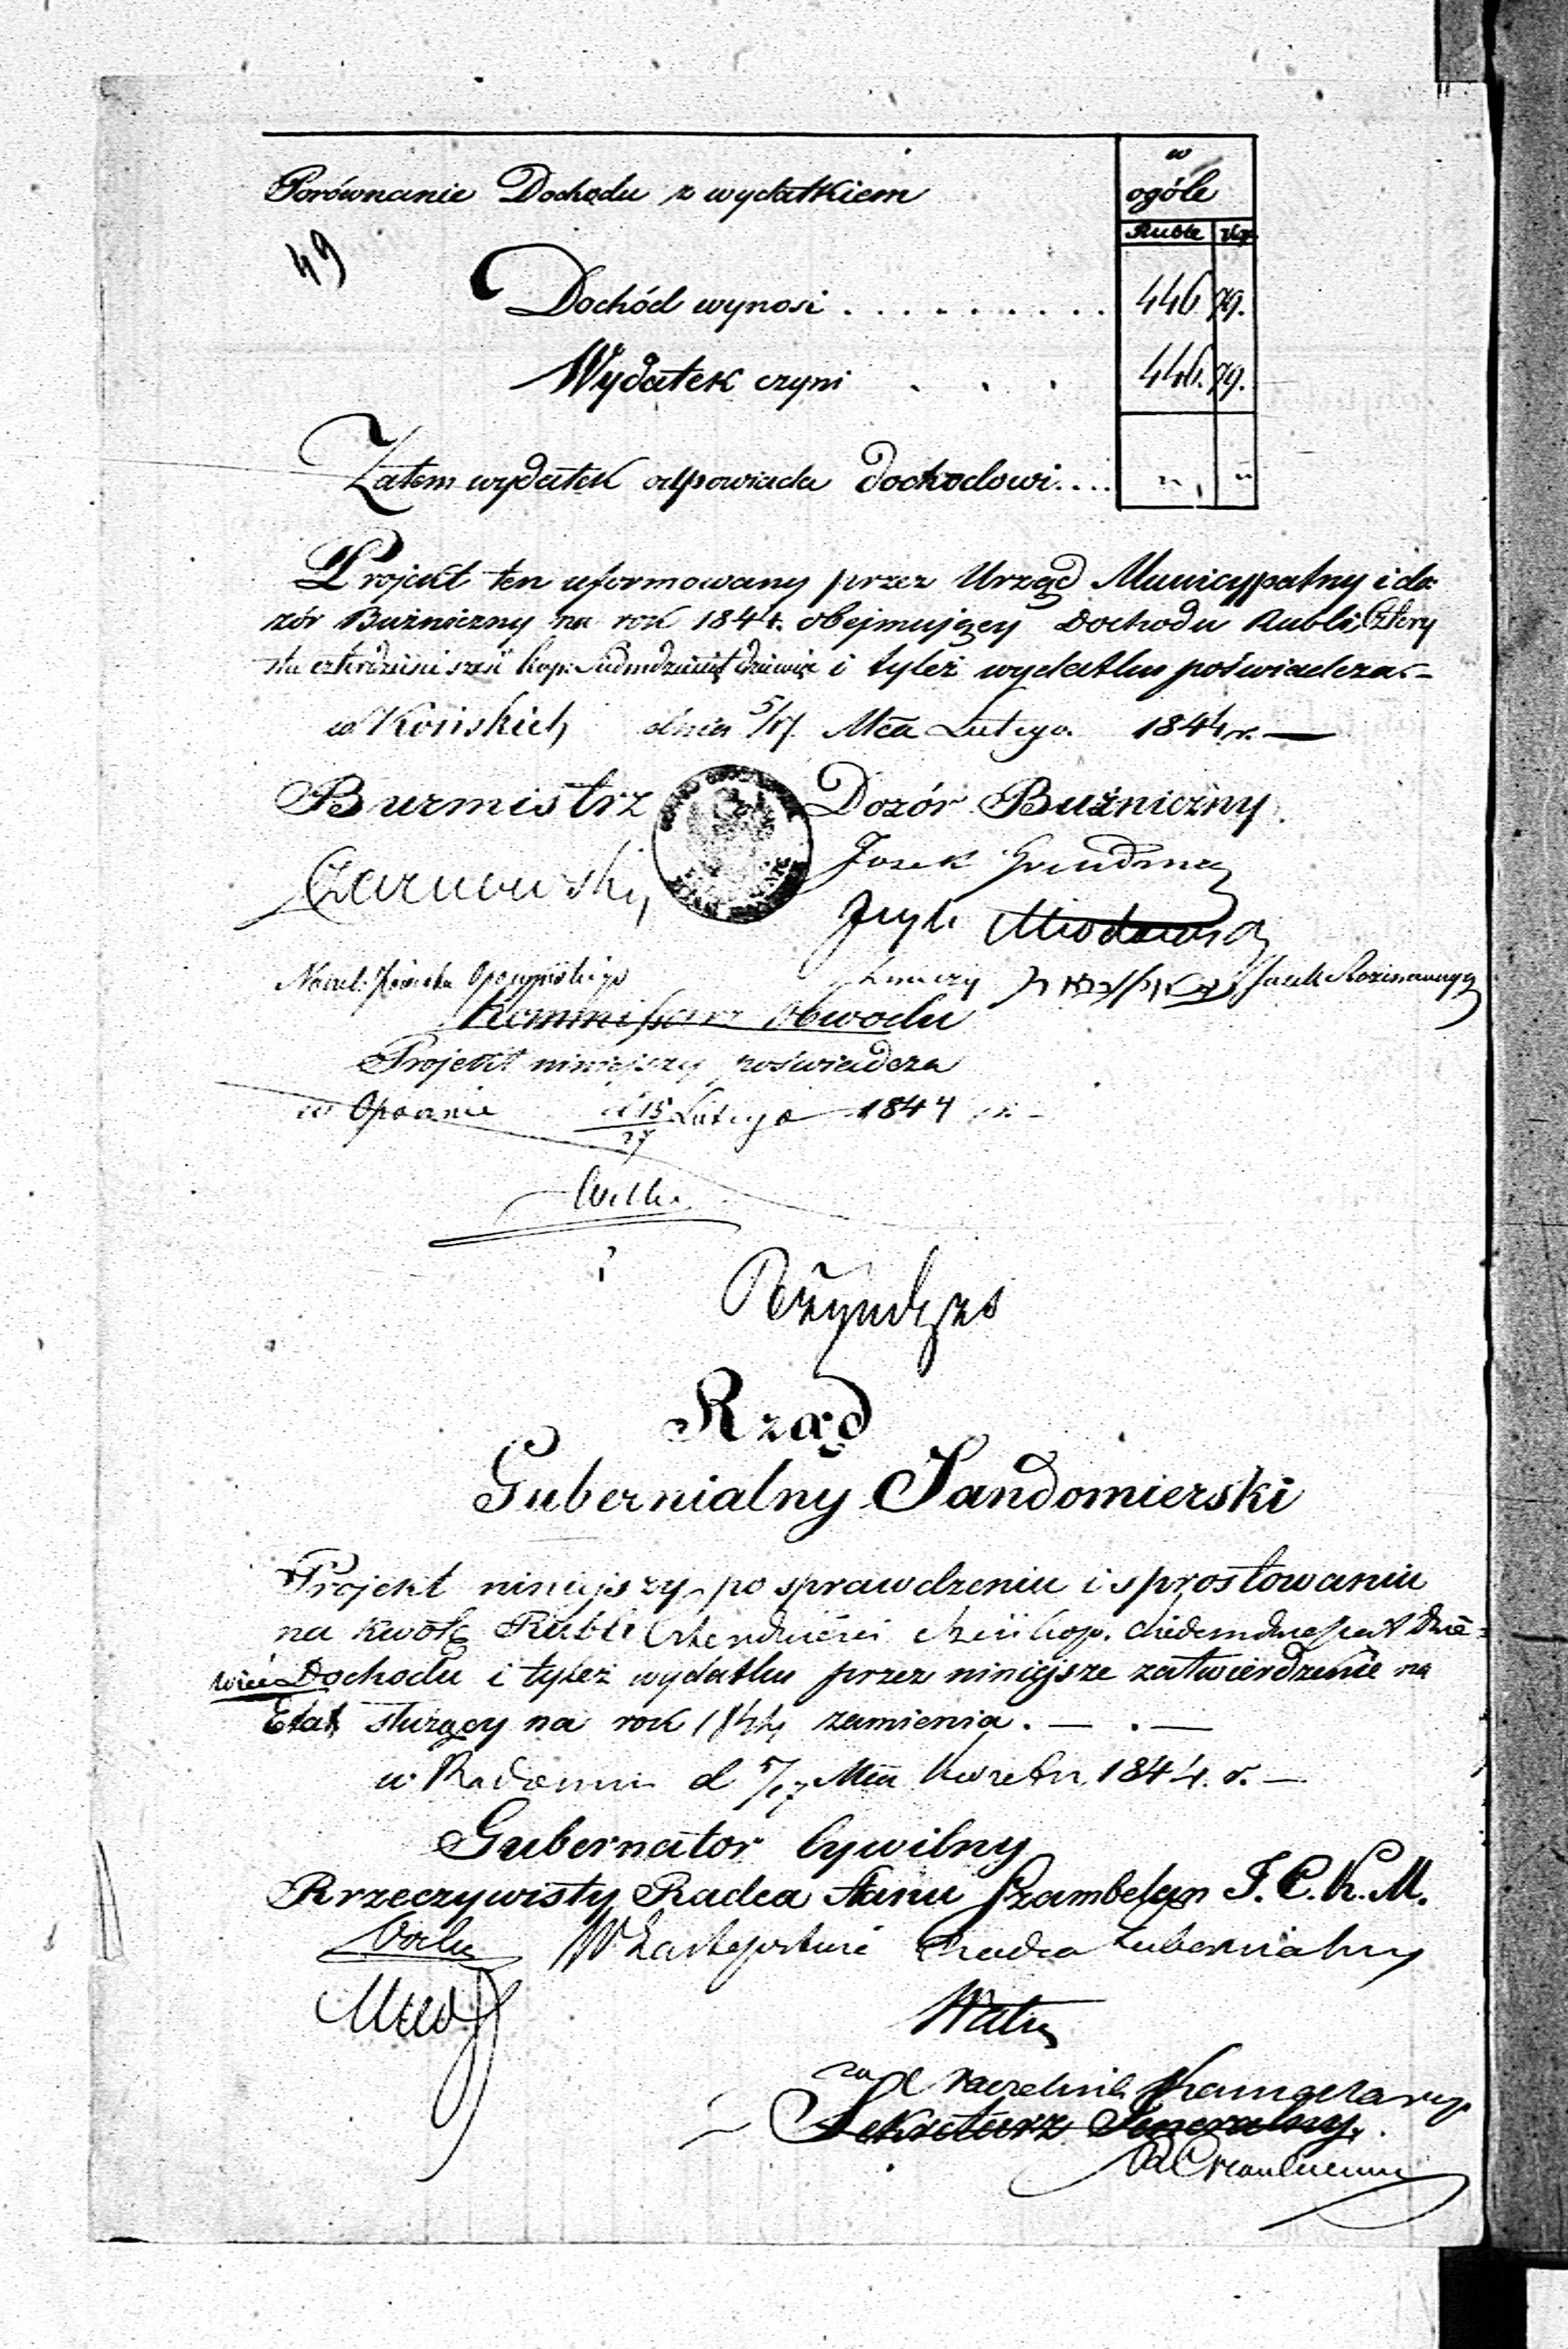 Porównanie Dochodu z wydatkiem
w ogóle
49
Ruble kop.
Dochód wynosi . . . . . . . . . 446 79.
Wydatek czyni . . . 446. 79.
Zatem wydatek odpowiada dochodowi.... " "
Projekt ten uformowany przez Urząd Municypalny i do=
zór Bużniczny na rok 1844. obejmujący Dochodu Rubli Cztery
sta czterdzieści sześć kop: siedmdziesiąt dziewięć i tyleż wydatku poświadcza.–
w Końskich dnia 5/17 Mca Lutego 1844 r. —
Burmistrz Dozór Bużniczny.
Czarnowski
Josek
Josek
Naczel: Powiatu Opoczyńskiego
Kommissarz Obwodu
Projekt niniejszy poświadcza
w Opocznie d 15/27 Lutego 1844 r. –
Rząd
Gubernialny Sandomierski
Projekt niniejszy po sprawdzeniu i sprostowaniu
na kwotę Rubli Czterdzieści sześć kop. siedemdziesiąt dzie=
więć Dochodu i tyleż wydatku przez niniejsze zatwierdzenie na
Etat służący na rok 1844 zamienia. — . —
w Radomiu d 5/17 Mca Kwietn 1844. r. —
Gubernator Cywilny
Rzeczywisty Radca Stanu Szambelan J. C. K. M.
W Zastępstwie Radca Gubernialny
za Naczelnik Kancelaryi
Sekretarz Jeneralny.